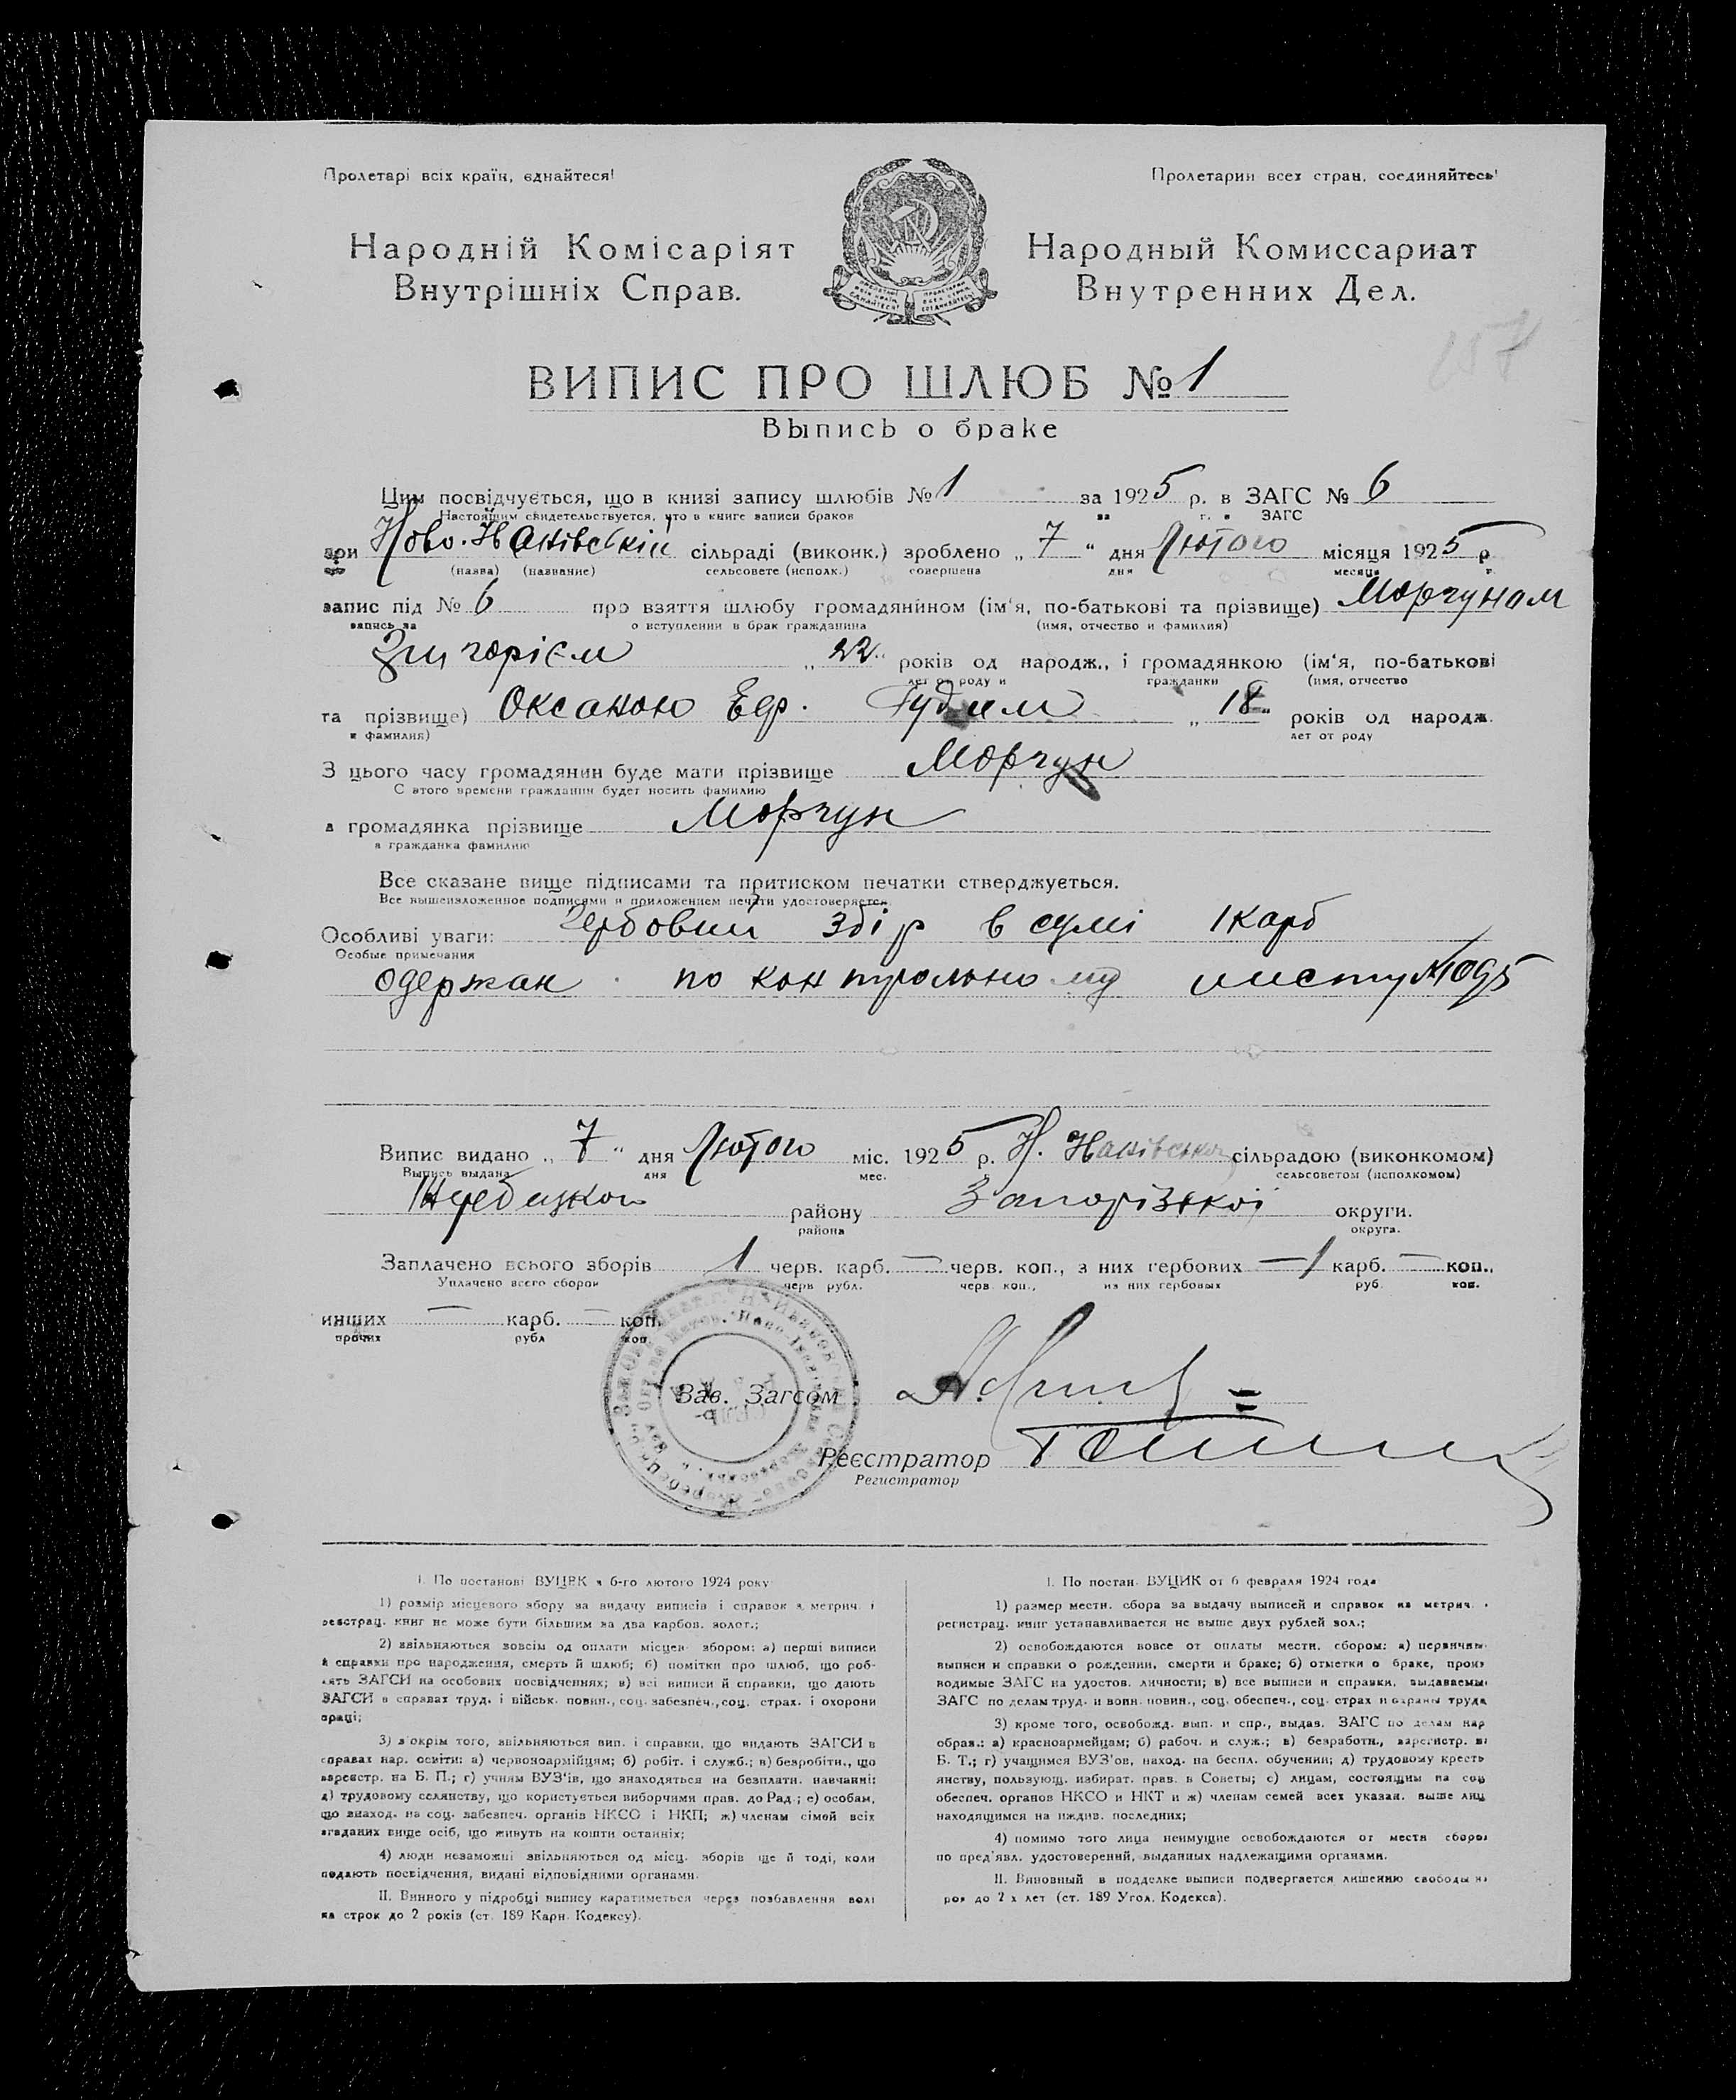 Пролетарі всіх країн, єднайтеся!
Пролетарии всех стран, соединяйтесь!
Народній Комісаріят
Внутрішніх Справ.
Народный Комиссариат
Внутренних Дел.
ВИПИС ПРО ШЛЮБ № 1
Выпись о браке
Цим посвідчується, що в книзі запису шлюбів № 1 за 1925 р. в ЗАГС № 6
Настоящим свидетельствуется, что в книге записи браков за г. в ЗАГС
при Ново. сільраді (виконк.) зроблено „ 7 “ дня Лютого місяця 1925 р.
(назва) (название) сельсовете (исполк.) совершена дня месяца г.
запис під № 6 про взяття шлюбу громадянином (ім'я, по-батькові та прізвище) Морчуном
запись за о вступлении в брак гражданина (имя, отчество и фамилия)
Григорієм „ 22 “ років од народж., і громадянкою (ім'я, по-батькові
лет от роду и гражданки (имя, отчество
та прізвище) Оксаною Еф. „ 18 “ років од народж.
и фамилия) лет от роду
З цього часу громадянин буде мати прізвище Морчун
С этого времени гражданин будет носить фамилию
а громадянка прізвище Морчун
а гражданка фамилию
Все сказане вище підписами та притиском печатки стверджується.
Все вышеизложенное подписями и приложением печати удостоверяется.
Особливі уваги: Гербовий збір в сумі 1 карб
Особые примечания
одержан по контрольному листу
Випис видано „ 7 “ дня Лютого міс. 1925 р. Н. сільрадою (виконкомом)
Выпись выдана дня мес. сельсоветом (исполкомом)
району Запорізької округи.
района округа.
Заплачено всього зборів 1 черв. карб. — черв. коп., з них гербових — 1 карб. — коп.,
Уплачено всего сборов черв рубл. черв коп., из них гербовых руб. коп.
инших — карб. — коп.
прочих рубл коп.
Зав. Загсом
Реєстратор
Регистратор
I. По постанові ВУЦВК з 6-го лютого 1924 року:
1) розмір місцевого збору за видачу виписів і справок з метрич. і
реєстрац. книг не може бути більшим за два карбов. золот.;
2) звільняються зовсім од оплати місцев. збором: а) перші виписи
й справки про народження, смерть й шлюб; б) помітки про шлюб, що роб-
лять ЗАГСИ на особових посвідченнях; в) всі виписи й справки, що дають
ЗАГСИ в справах труд. і військ. повин., соц. забезпеч., соц. страх. і охорони
праці;
3) з'окрім того, звільняються вип. і справки, що видають ЗАГСИ в
справах нар. освіти: а) червоноармійцям; б) робіт. і служб.; в) безробітн., що
зареєстр. на Б. П.; г) учням ВУЗ'ів, що знаходяться на безплатн. навчанні;
д) трудовому селянству, що користується виборчими прав. до Рад.; е) особам,
що знаход. на соц. забезпеч. органів НКСО і НКП; ж) членам сімей всіх
згаданих вище осіб, що живуть на кошти останніх;
4) люди незаможні звільняються од місц. зборів ще й тоді, коли
подають посвідчення, видані відповідними органами.
II. Винного у підробці випису каратиметься через позбавлення волі
на строк до 2 років (ст. 189 Карн. Кодексу).
I. По постан. ВУЦИК от 6 февраля 1924 года
1) размер местн. сбора за выдачу выписей и справок из метрич. и
регистрац. книг устанавливается не выше двух рублей зол.;
2) освобождаются вовсе от оплаты местн. сбором: а) первичны
выписи и справки о рождении, смерти и браке; б) отметки о браке, произ
водимые ЗАГС на удостов. личности; в) все выписи и справки, выдаваемы
ЗАГС по делам труд. и воин. повин., соц. обеспеч., соц. страх и охраны труда
3) кроме того, освобожд. вып. и спр., выдав. ЗАГС по делам нар
образ.: а) красноармейцам; б) рабоч. и служ.; в) безработн., зарегистр. на
Б. Т.; г) учащимся ВУЗ'ов, наход. на беспл. обучении; д) трудовому кресть
янству, пользующ. избират. прав. в Советы; е) лицам, состоящим на соц
обеспеч. органов НКСО и НКТ и ж) членам семей всех указан. выше лиц
находящимся на иждив. последних;
4) помимо того лица неимущие освобождаются от местн сборов
по пред'явл. удостоверений, выданных надлежащими органами.
II. Виновный в подделке выписи подвергается лишению свободы на
рок до 2 х лет (ст. 189 Угол. Кодекса).